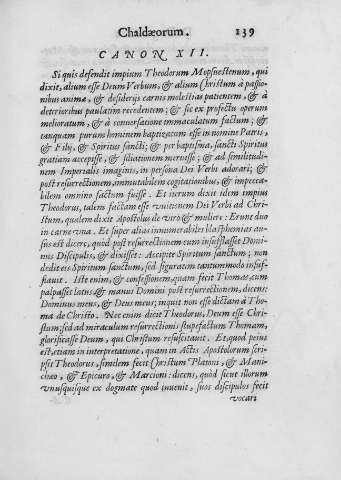 Chaldæorum. 139
CANON XII.
Si quis defendit impium Theodorum Mopsuestenum, qui
dixit, alium esse Deum Verbum, & alium Christum à passio-
nibus animæ, & desiderijs carnis molestias patientem, & à
deterioribus paulatim recedentem; & sic ex profectu operum
melioratum, & à conuersatione immaculatum factum; &
tanquam purum hominem baptizatum esse in nomine Patris,
& Filij, & Spiritus sancti; & per baptisma, sancti Spiritus
gratiam accepisse, & filiationem meruisse; & ad similitudi-
nem Imperialis imaginis, in persona Dei Verbi adorari; &
post resurrectionem, immutabilem cogitationibus, & impecca-
bilem omnino factum fuisse. Et iterum dixit idem impius
Theodorus, talem factam esse vnitionem Dei Verbi ad Chri-
stum, qualem dixit Apostolus de viro & muliere: Erunt duo
in carne vna. Et super alias innumerabiles blasphemias au-
sus est dicere, quòd post resurrectionem cum insufflasset Domi-
nus Discipulis, & dixisset: Accipite Spiritum sanctum; non
dedit eis Spiritum sanctum, sed figuratiuè tantummodo insuf-
flauit. Iste enim, & confessionem, quam fecit Thomas, cum
palpasset latus, & manus Domini post resurrectionem, dicens:
Dominus meus, & Deus meus; inquit non esse dictam à Tho-
ma de Christo. Nec enim dicit Theodorus, Deum esse Chri-
stum; sed ad miraculum resurrectionis stupefactum Thomam,
glorificasse Deum, qui Christum resuscitauit. Et, quod peius
est, etiam in interpretatione, quam in Actis Apostolorum scri-
psit Theodorus, similem fecit Christum Platoni, & Mani-
chæo, & Epicuro, & Marcioni: dicens, quòd sicut illorum
vnusquisque ex dogmate quod inuenit, suos discipulos fecit
vocari